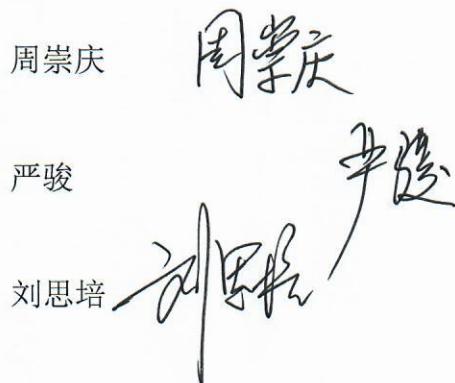 周崇庆 周崇庆
严骏 严骏
刘思培 刘思培